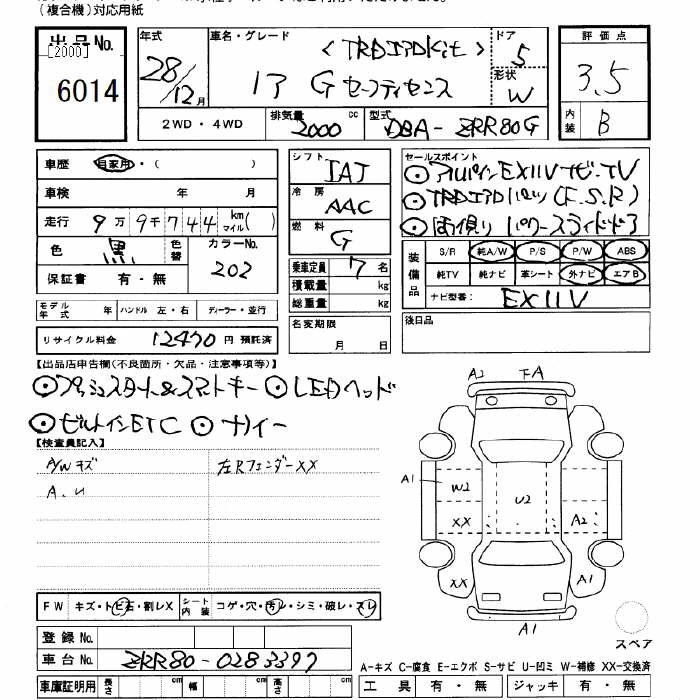 (複合機)対応用紙
出品No.
[2000]
6014
年式
28/12月
車名・グレード
<TRDエアロKit>
ドア
5
形状
W
評価点
3.5
内装
B
2WD・4WD
排気量
2000
cc
型式
DBA-ZRR80G
車歴
自家用・( )
車検
年 月
走行
9万9千744
km
マイル( )
色
黒
色替
カラーNo.
202
保証書
有・無
シフト
IAT
冷房
AAC
燃料
G
乗車定員
7名
積載量
kg
総重量
kg
セールスポイント
⊙アルパインEX11Vナビ・TV
⊙TRDエアロパーツ(F.S.R)
⊙両側パワースライドドア
装備品
S/R
純A/W
P/S
P/W
ABS
純TV
純ナビ
革シート
外ナビ
エアB
ナビ型番:
EX11V
モデル年式
年
ハンドル
左・右
ディーラー・並行
リサイクル料金
12470円
預託済
名変期限
月 日
後日品
【出品店申告欄(不良箇所・欠品・注意事項等)】
⊙プッシュスタート&スマートキー ⊙LEDヘッド
⊙ビルトインETC ⊙ナノイー
【検査員記入】
A/Wキズ
左RフェンダーXX
A.U
A2
FA
A1
W2
U2
XX
A2
XX
A1
A1
スペア
FW
キズ・トビ石・割レX
シート内装
コゲ・穴・汚レ・シミ・破レ・スレ
登録No.
車台No.
ZRR80-0283397
車庫証明用
長さ
cm
幅
cm
高さ
cm
A-キズ C-腐食 E-エクボ S-サビ U-凹ミ W-補修 XX-交換済
工具
有・無
ジャッキ
有・無